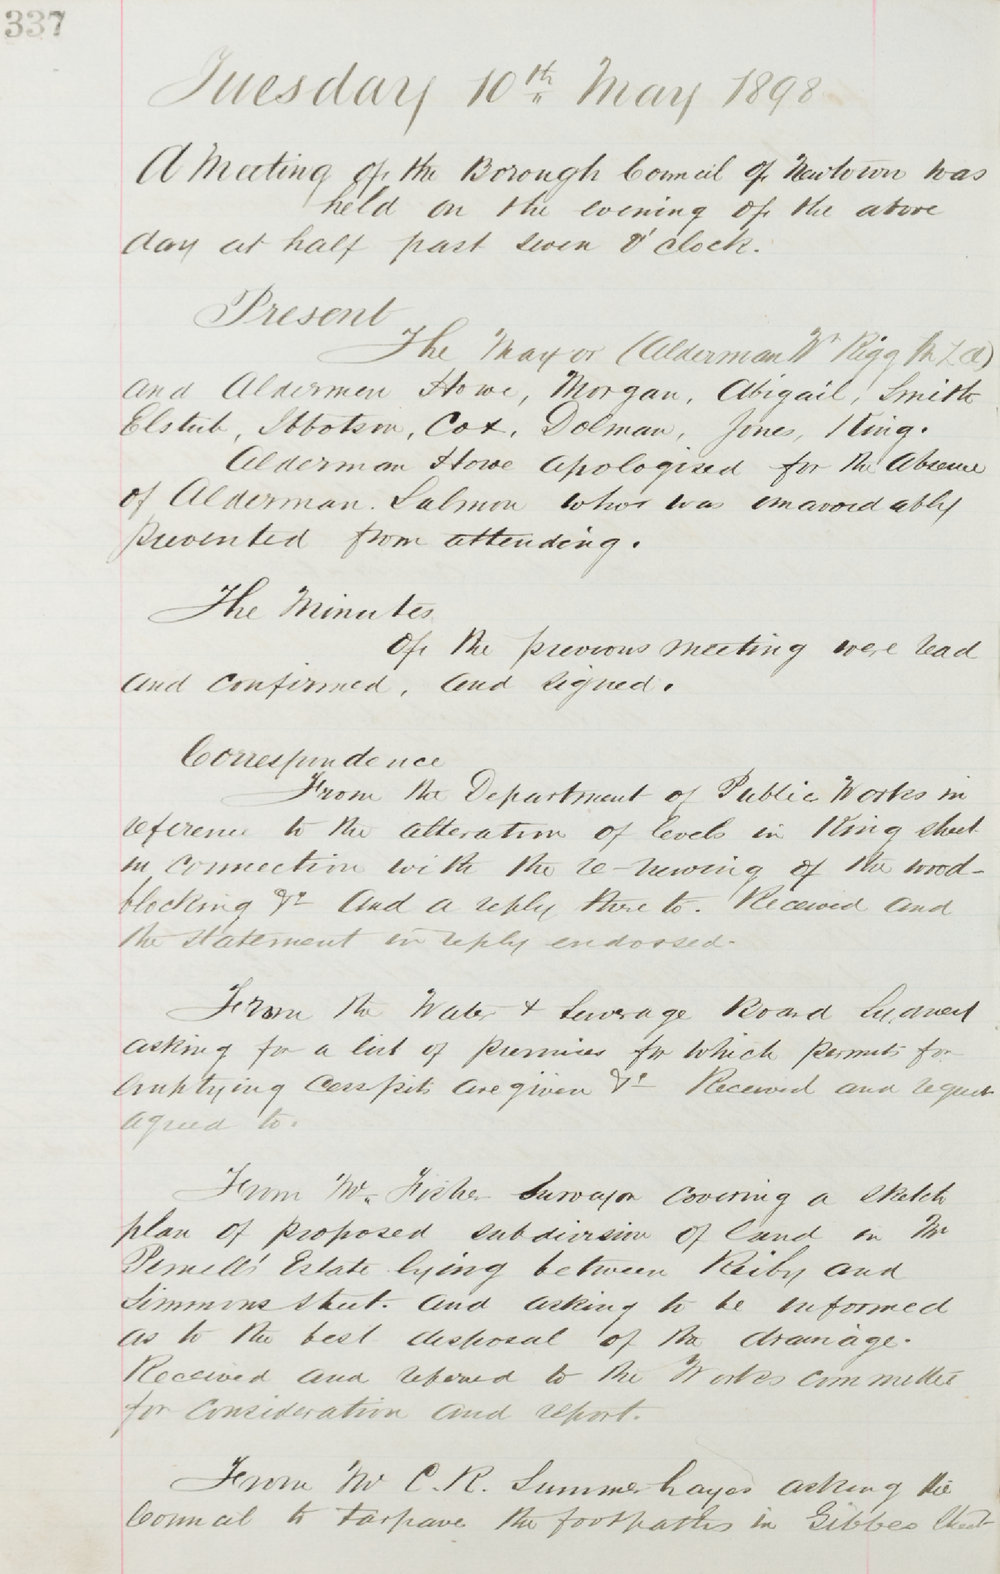 337
Tuesday 10th May 1898
A Meeting of the Borough Council of Newtown was
held on the evening of the above
day at half past seven O'clock.
Present
The Mayor (Alderman Wm Rigg M L A)
and Aldermen Howe, Morgan, Abigail, Smith
Elstub, Ibbotson, Cox, Dolman, Jones, King.
Alderman Howe apologised for the absence
of Alderman Salmon who was unavoidably
prevented from attending.
The Minutes
Of the previous meeting were read
and confirmed, and signed.
Correspondence
From the Department of Public Works in
reference to the alteration of levels in King street
in connection with the re-newing of the wood-
blocking &c and a reply thereto. Received and
the statement in reply endorsed.
From the Water & Sewerage Board Sydney
asking for a list of premises for which permits for
emptying cesspits are given &c Received and request
agreed to.
From Mr. Fisher Surveyor covering a sketch
plan of proposed subdivision of land in Mr
Pernell's Estate lying between Reiby and
Simmons street. and asking to be informed
as to the best disposal of the drainage.
Received and referred to the Works committee
for consideration and report.
From Mr C. R. Summerhayes asking the
Council to tarpave the footpaths in Gibbes Street